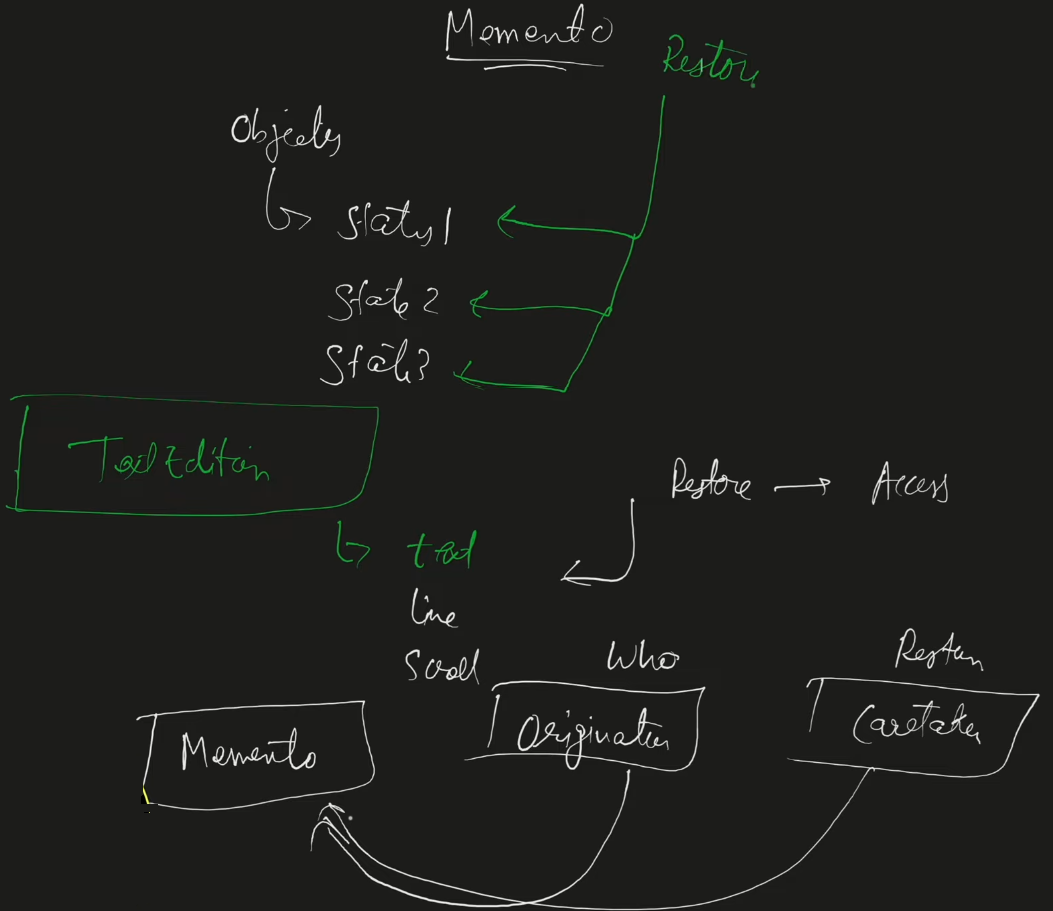 Memento
Restore
Objects
Status 1
State 2
State 3
Text Editor
Restore → Access
text
line
Scroll
Who
Restore
Memento
Originator
Caretaker